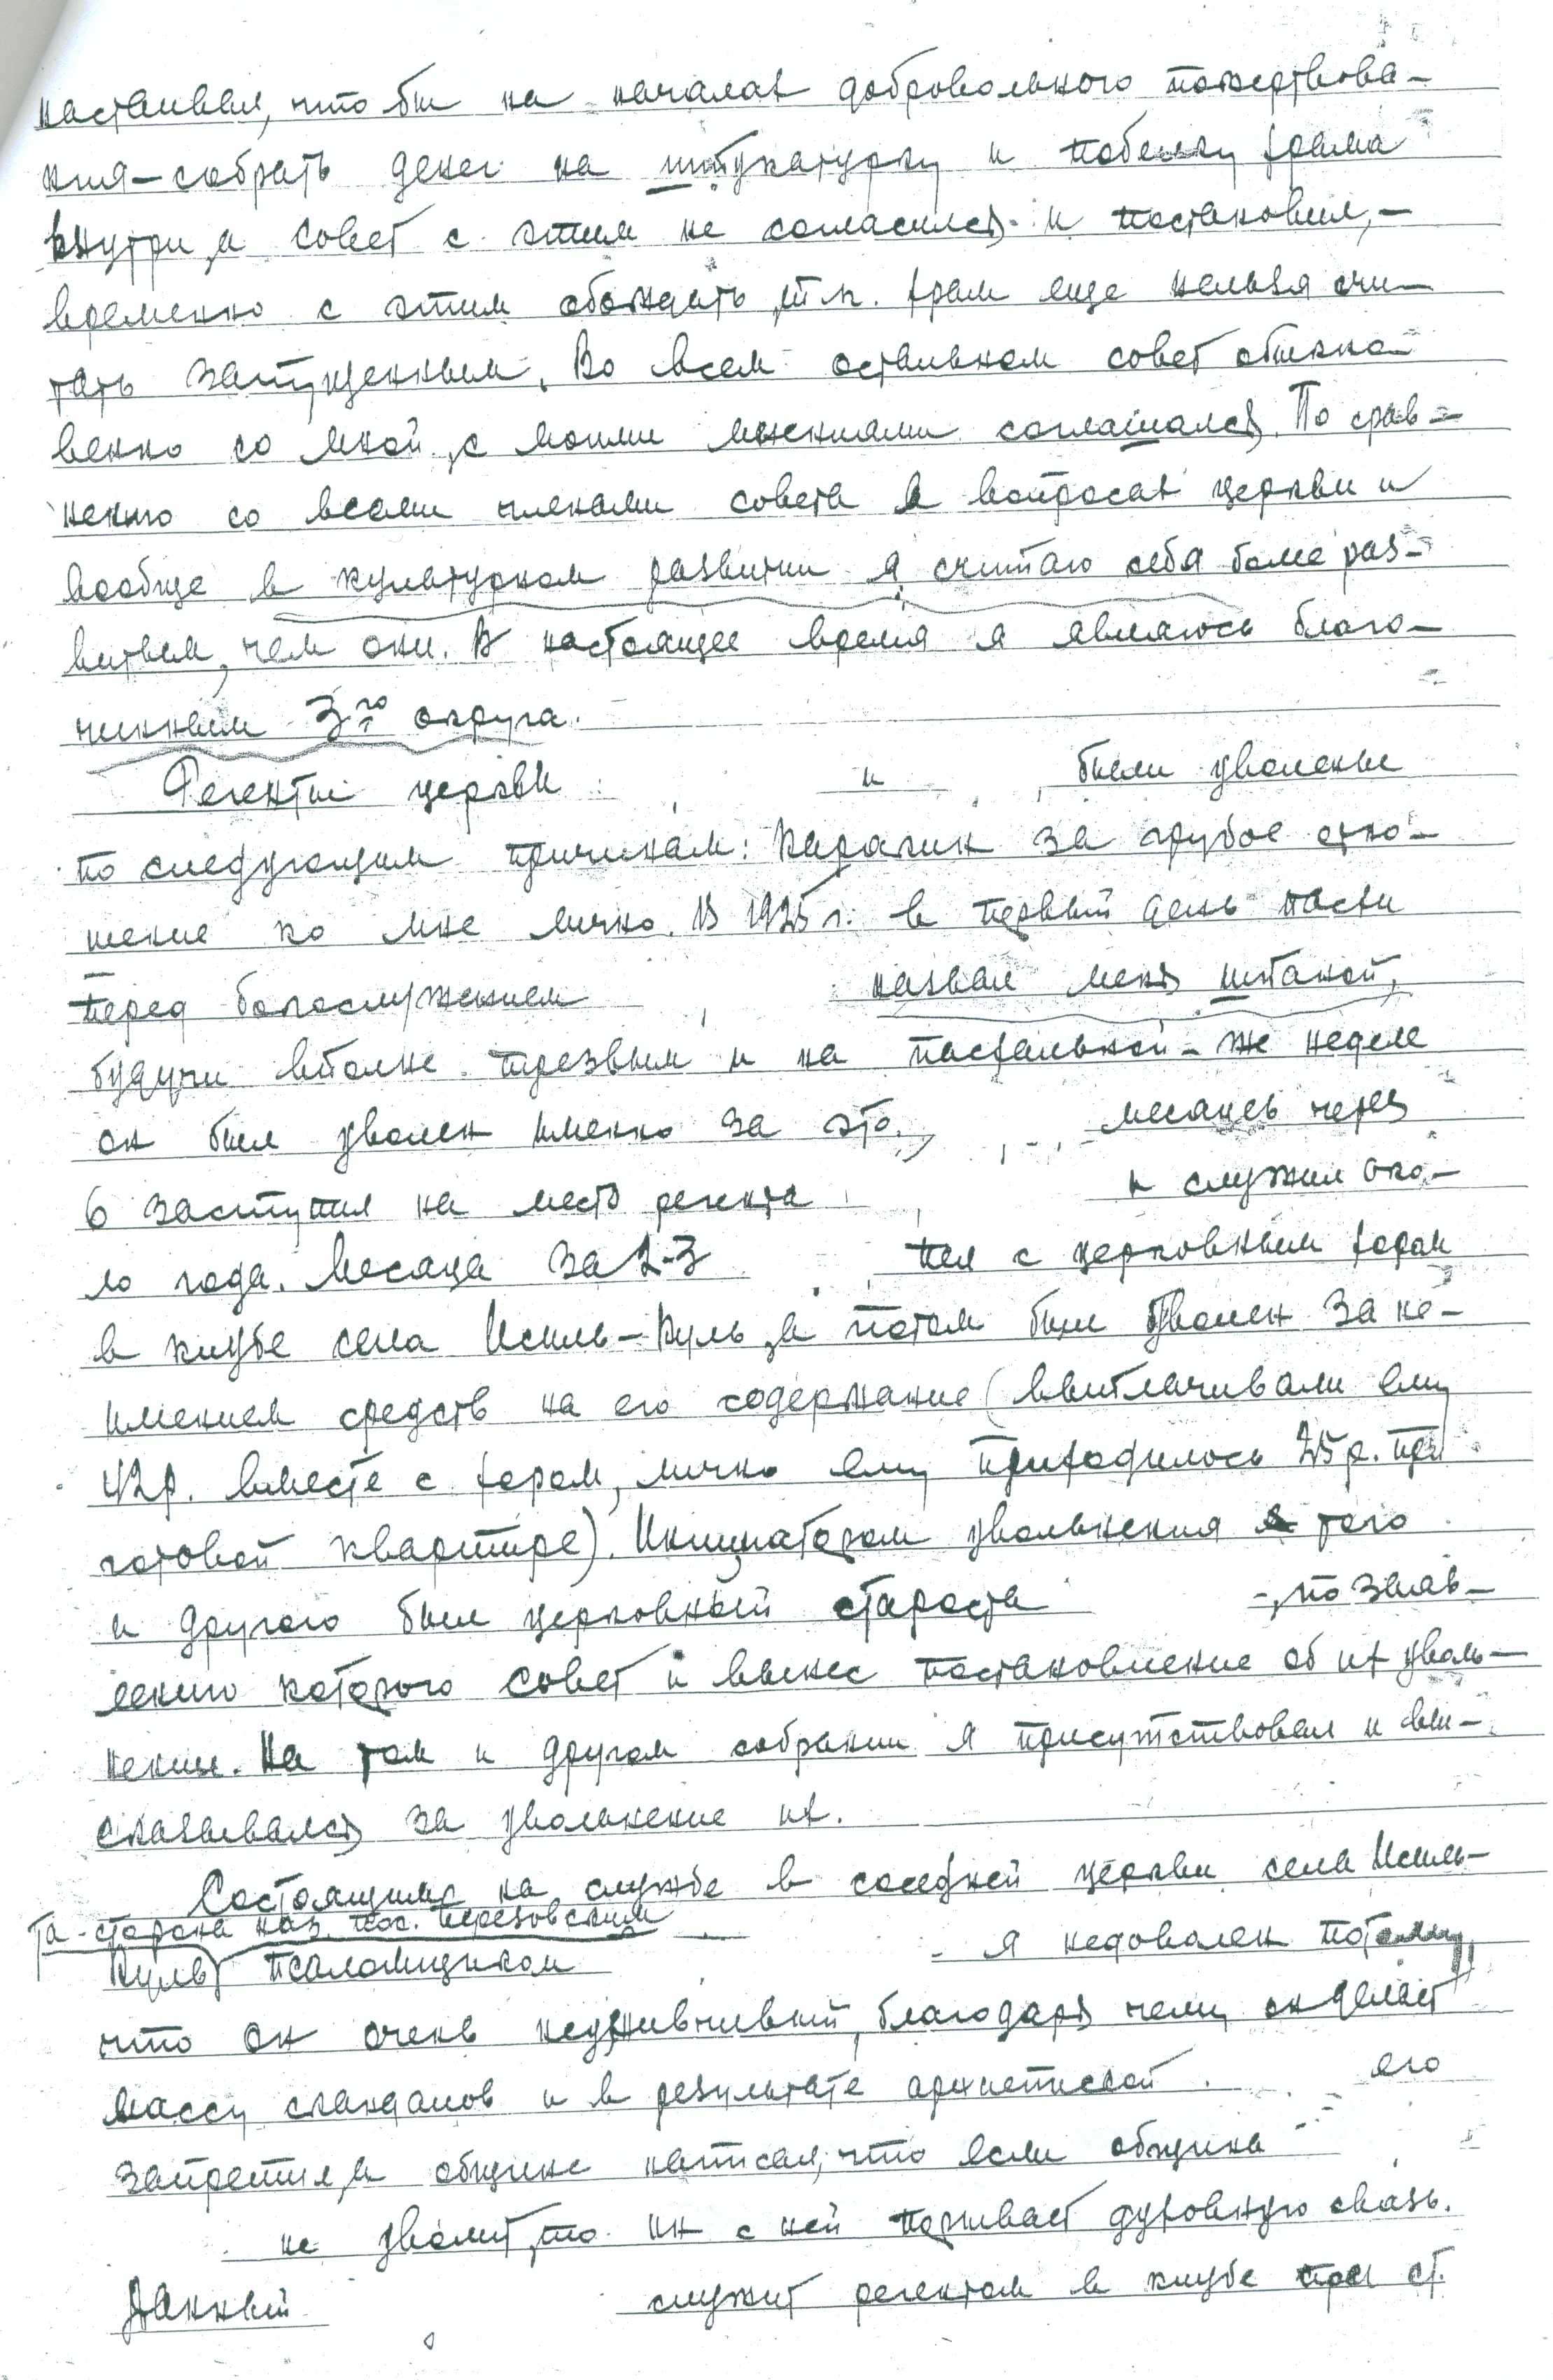 настаивал, что бы на началах добровольного пожертвова-
ния - собрать денег на штукатурку и побелку храма
внутри, а совет с этим не согласился и постановил, -
временно с этим обождать, т.к. храм еще нельзя счи-
тать запущенным. Во всем остальном совет обыкно-
венно со мной, с моими мнениями соглашался. По срав-
нению со всеми членами совета в вопросах церкви и
вообще в культурном развитии я считаю себя более раз-
витым, чем они. В настоящее время я являюсь благо-
чинным 3го округа.
Регенты церкви и были уволены
по следующим причинам: Карагин за грубое отно-
шение ко мне лично. В 1925 г. в первый день пасхи
перед богослужением назвал меня шпаной,
будучи вполне трезвым и на пасхальной-же неделе
он был уволен именно за это, месяцев через
6 заступил на место регента и служил око-
ло года. Месяца за 2-3 пел с церковным хором
в клубе села Исиль-Куль, а потом был уволен за не-
имением средств на его содержание (выплачивали ему
42 р. вместе с хором, лично ему приходилось 25 р. при
готовой квартире). Инициатором увольнения того
и другого был церковный староста -, по заяв-
лению которого совет и вынес постановление об их уволь-
нении. На том и другом собрании я присутствовал и вы-
сказывался за увольнение их.
Состоящим на службе в соседней церкви села Исиль-
та-сторона наз. пос.
Куль псаломщиком - я недоволен потому,
что он очень неуживчивый, благодаря чему он делает
массу скандалов и в результате архиепископ его
запретил, а общине написал, что если община
не уволит, то он с ней порывает духовную связь.
Данный служит регентом в клубе при ст.